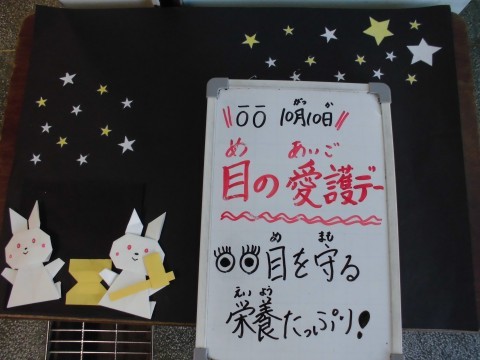 \\ 10月10日 //
がつ か
め あいご
目の愛護デー
め まも
目を守る
えいよう
栄養たっぷり!